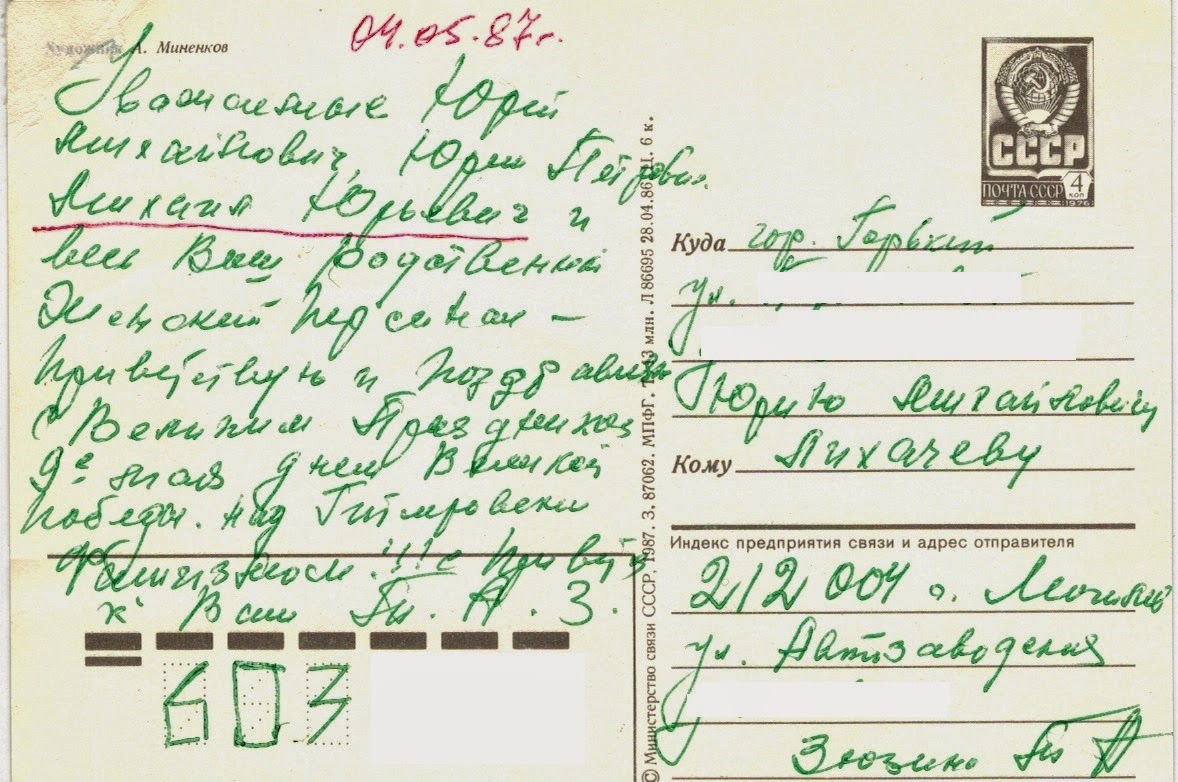 Художник А. Миненков
04.05.87г.
Уважаемые Юрий
Михайлович, Юрий Петрович
Михаил Юрьевич и
весь Ваш родственный
Женский Персонал –
Приветствую и поздравляю
С Великим Праздником
9е мая днем Великой
Победы. над Гитлеровским
Фашизмом !!! с Приветом
к Вам А. З.
603
© Министерство связи СССР, 1987. З. 87062. МПФГ. Л 86695 28.04.86 Ц. 6 к.
СССР
ПОЧТА СССР 4 КОП
1976
Куда гор. Горький
ул.
Юрию Михайловичу
Кому Лихачеву
Индекс предприятия связи и адрес отправителя
212004 г. Могилев
ул. Автозаводская